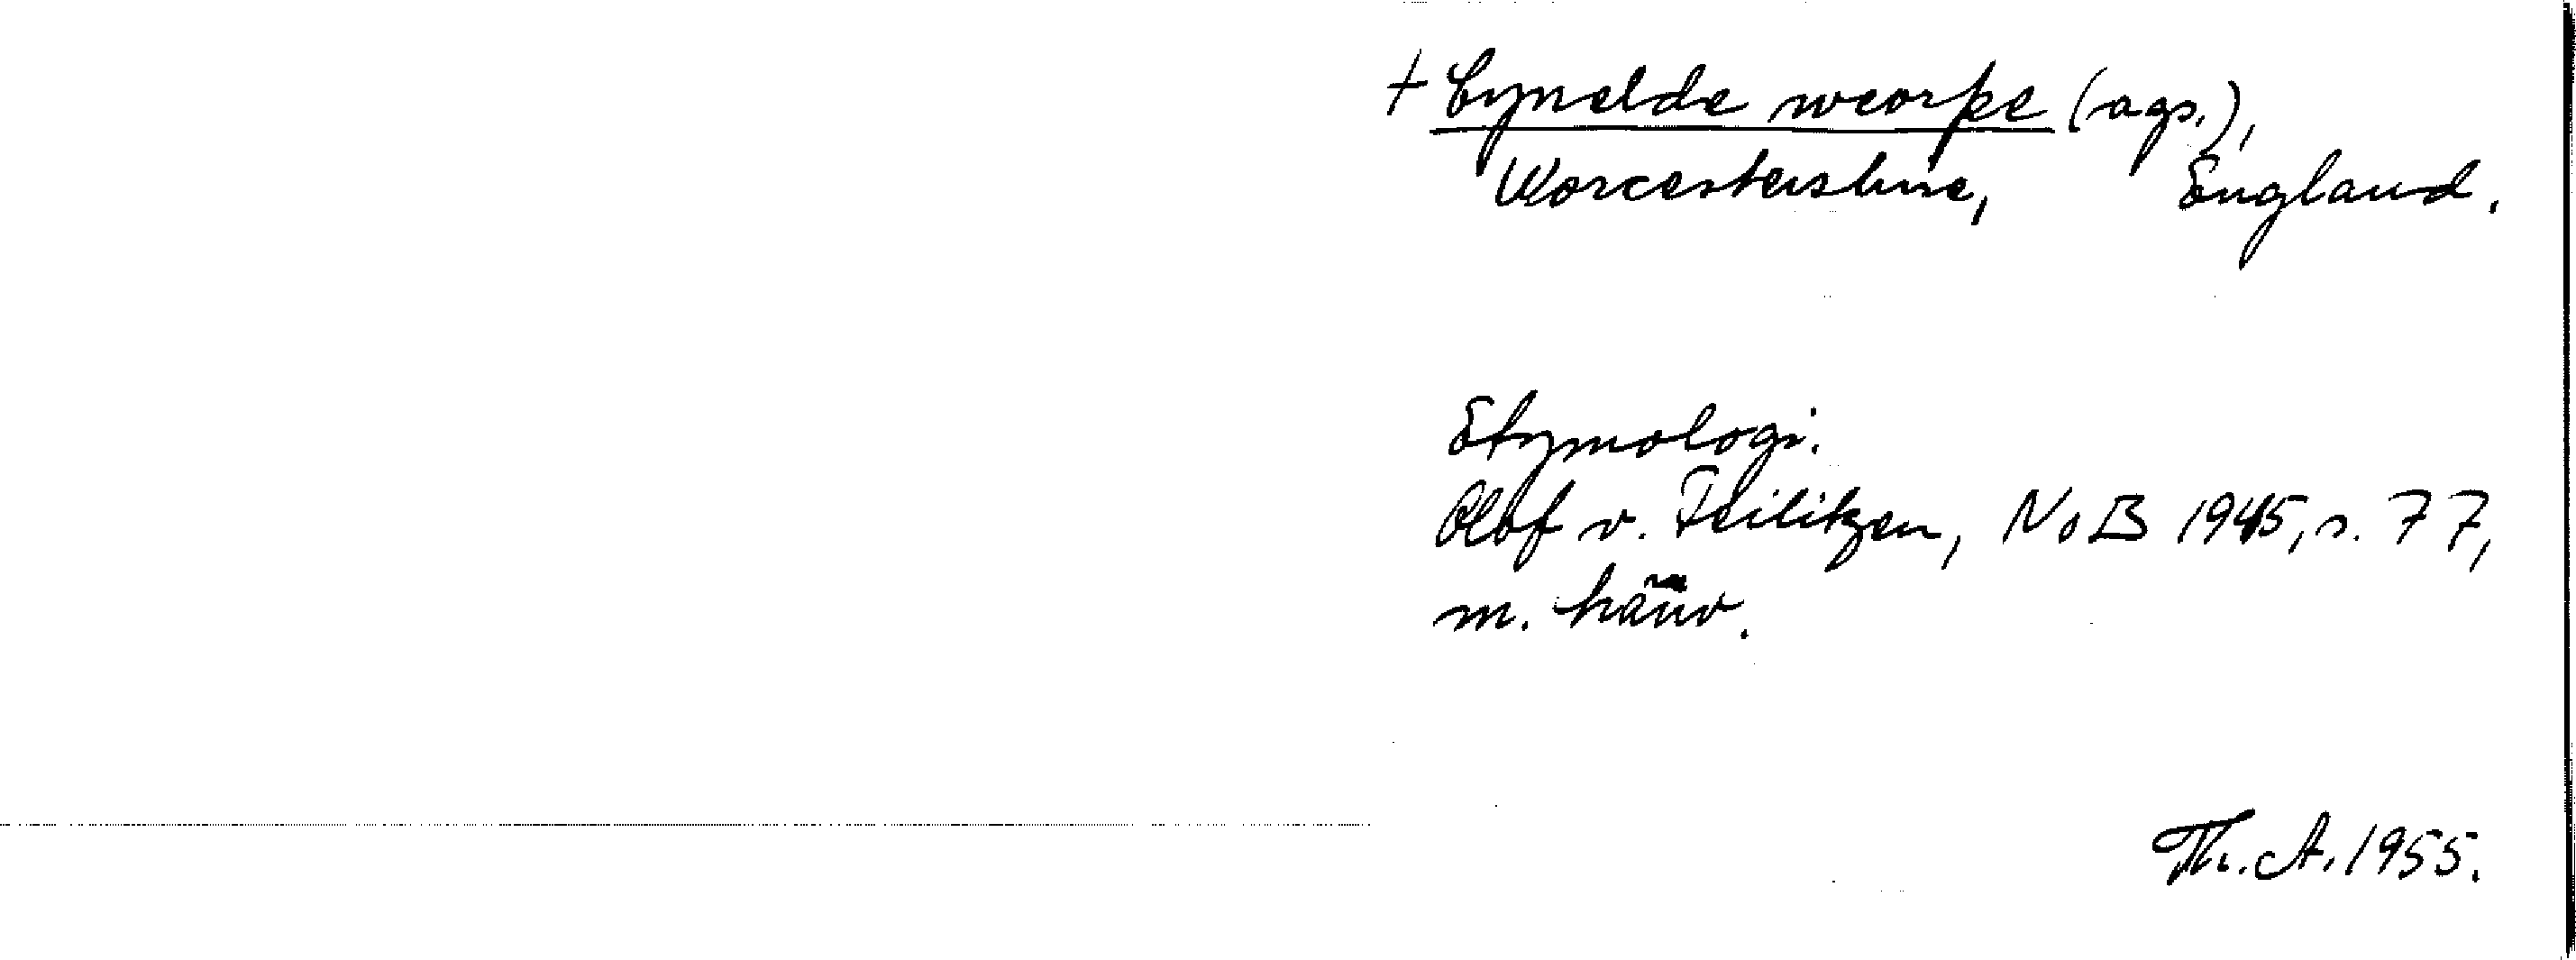 + Cynelde weorþe (ags.),
Worcestershire, England.
Etymologi.
Olof v. Feilitzen, NoB 1945, s. 77,
m. hänv.
Th. A. 1955.